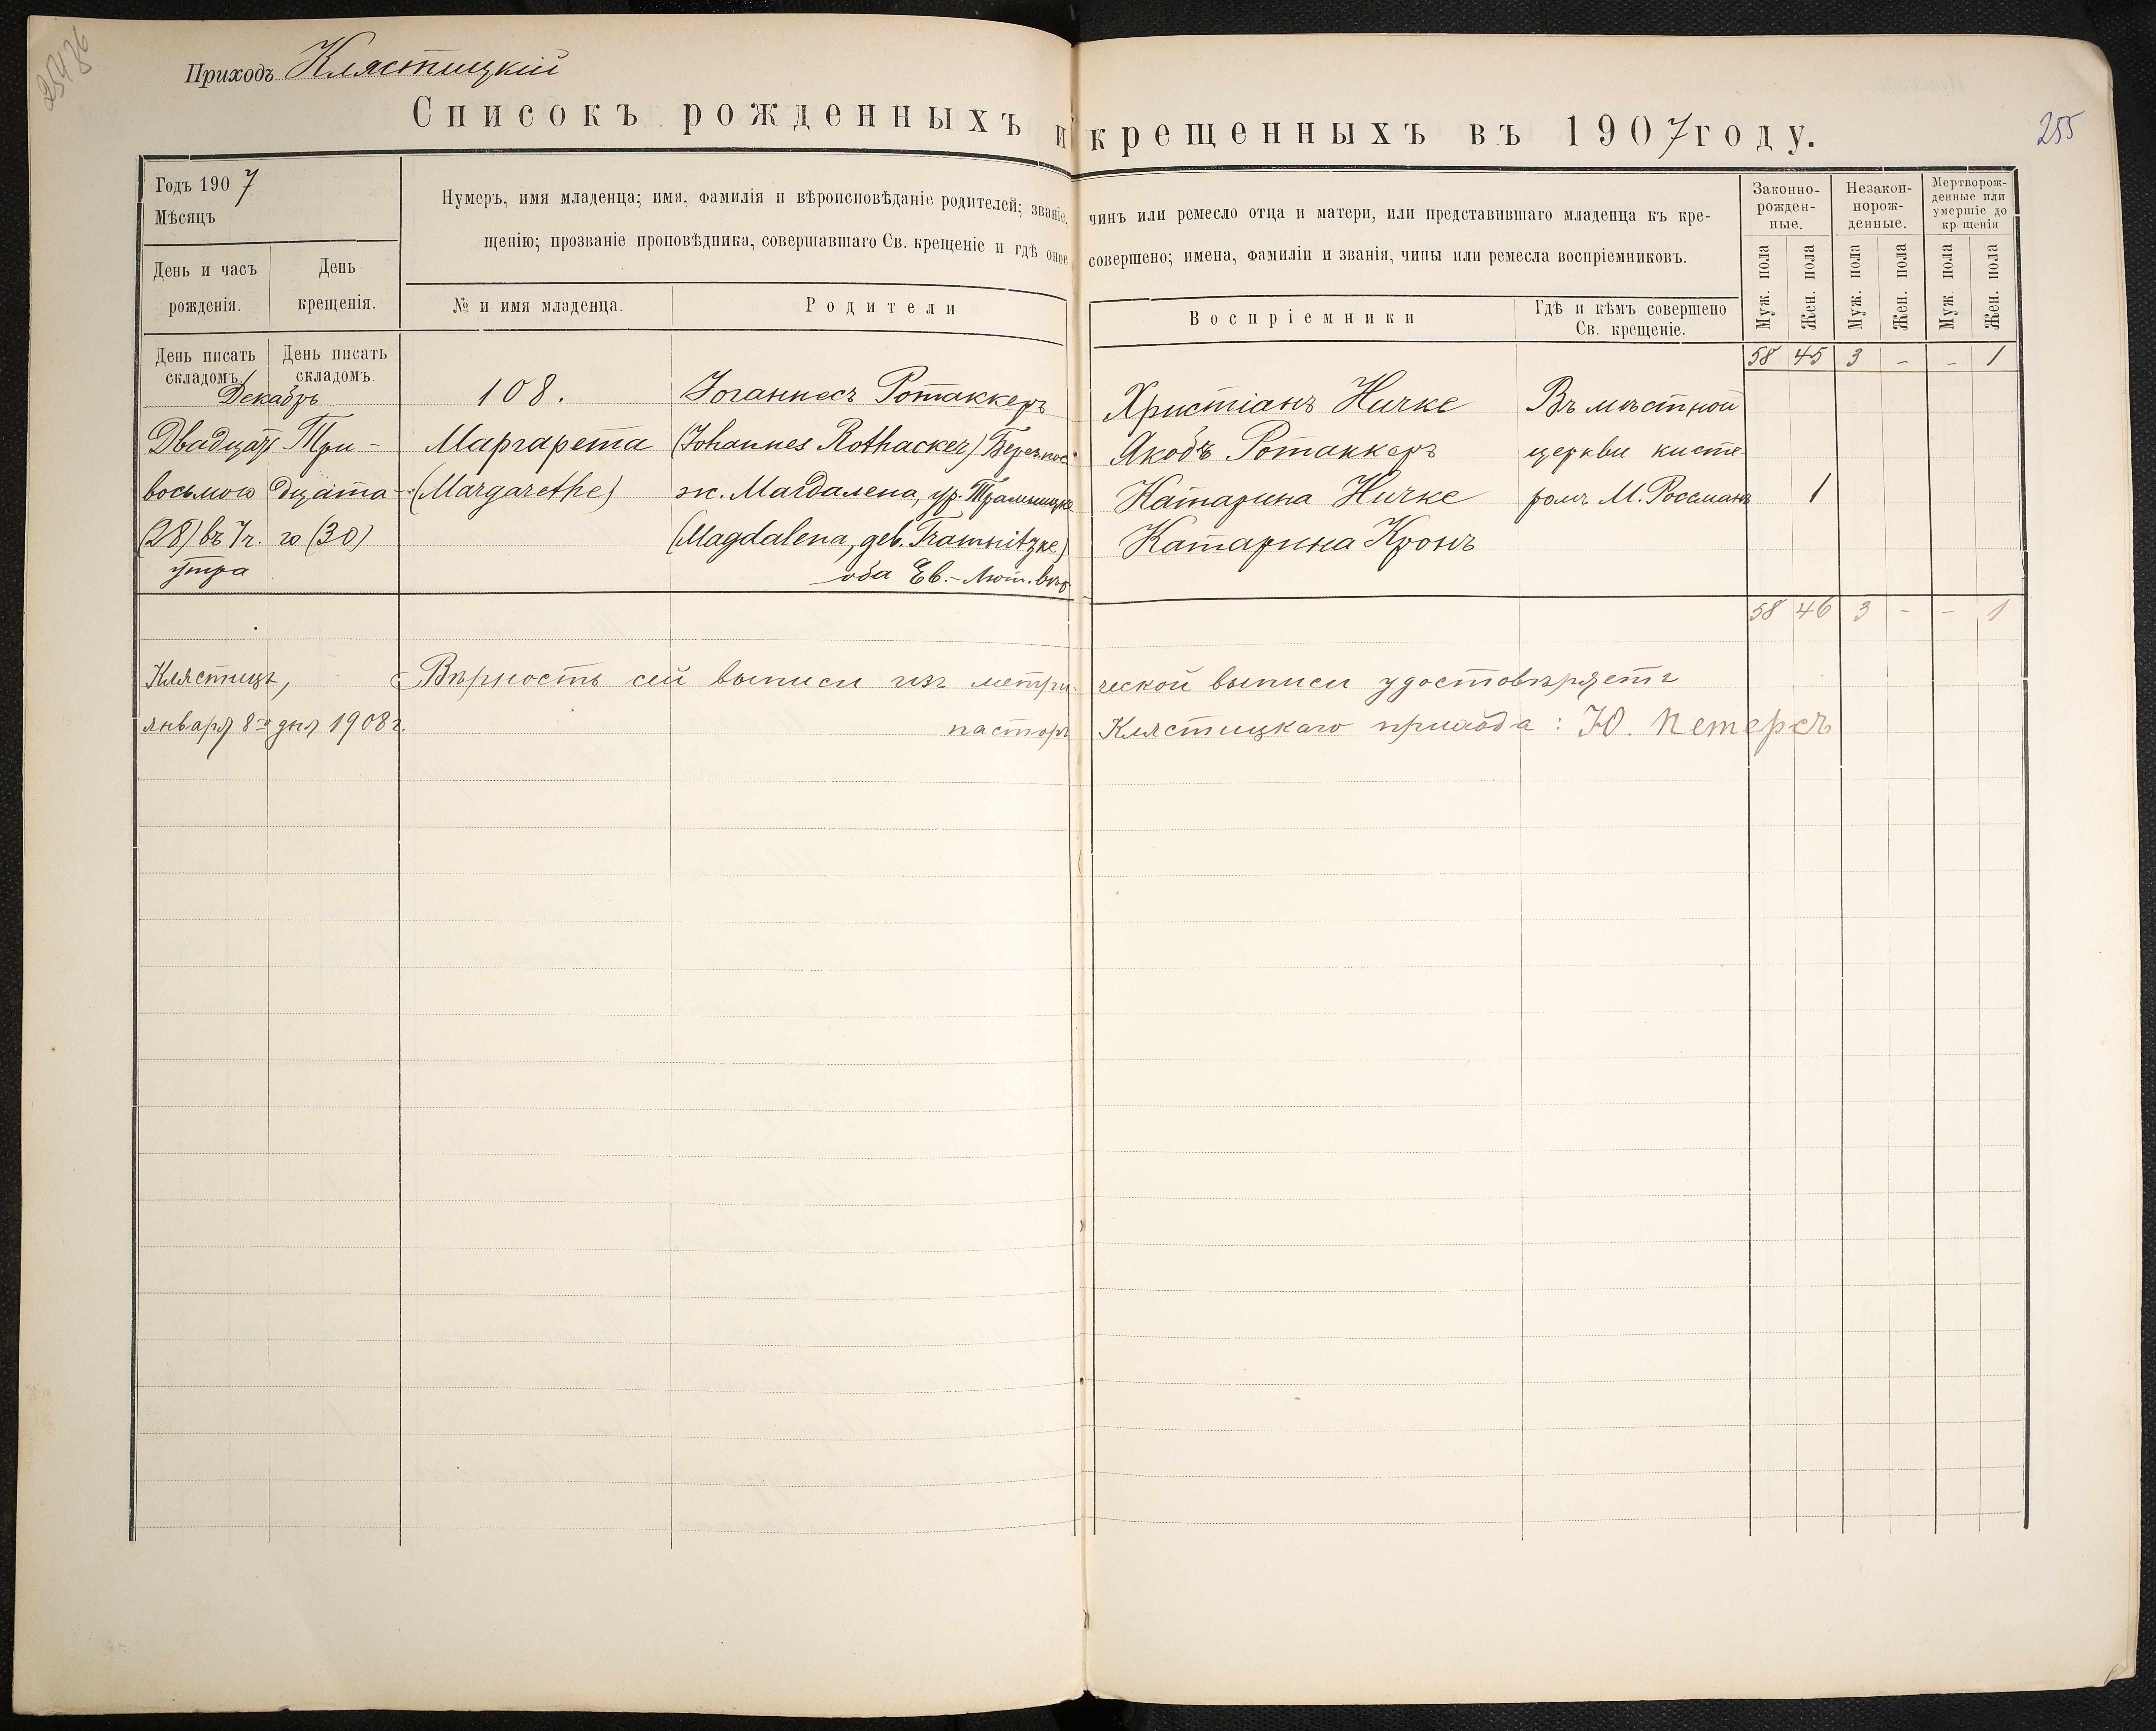 25476
Приходъ Клястицкій
Списокъ рожденныхъ и крещенныхъ въ 1907 году.
255
Годъ 1907
Мѣсяцъ
День и часъ рожденія.
День крещенія.
Нумеръ, имя младенца; имя, фамилія и вѣроисповѣданіе родителей; званіе, чинъ или ремесло отца и матери, или представившаго младенца къ кре-
щенію; прозваніе проповѣдника, совершавшаго Св. крещеніе и гдѣ оное совершено; имена, фамиліи и званія, чины или ремесла воспріемниковъ.
№ и имя младенца.
Родители
Воспріемники
Гдѣ и кѣмъ совершено
Св. крещеніе.
Законно-
рожден-
ные.
Незакон-
норож-
денные.
Мертворож-
денные или
умершіе до
крещенія
Муж. пола
Жен. пола
Муж. пола
Жен. пола
Муж. пола
Жен. пола
День писать
складомъ.
День писать
складомъ.
58 45 3 – – 1
Декабрь
Двадцать
восьмого
(28) въ 7 ч.
утра
Три-
дцата-
го (30)
108.
Маргарета
(Margarethe)
Іоганнесъ Ротаккеръ
(Johannes Rothacker)
ж. Магдалена, ур. Трамницке
(Magdalena, geb. Tramnitzke)
оба Ев.-Лют. вѣр.
Христіанъ Ничке
Якобъ Ротаккеръ
Катарина Ничке
Катарина Кронъ
Въ мѣстной
церкви кисте
ромъ М. Россманъ
1
58 46 3 – – 1
Клястицъ,
января 8го дня 1908 г.
Вѣрность сей выписи изъ метри-ческой выписи удостовѣряетъ
пасторъ Клястицкаго прихода: Ю. Петерсъ